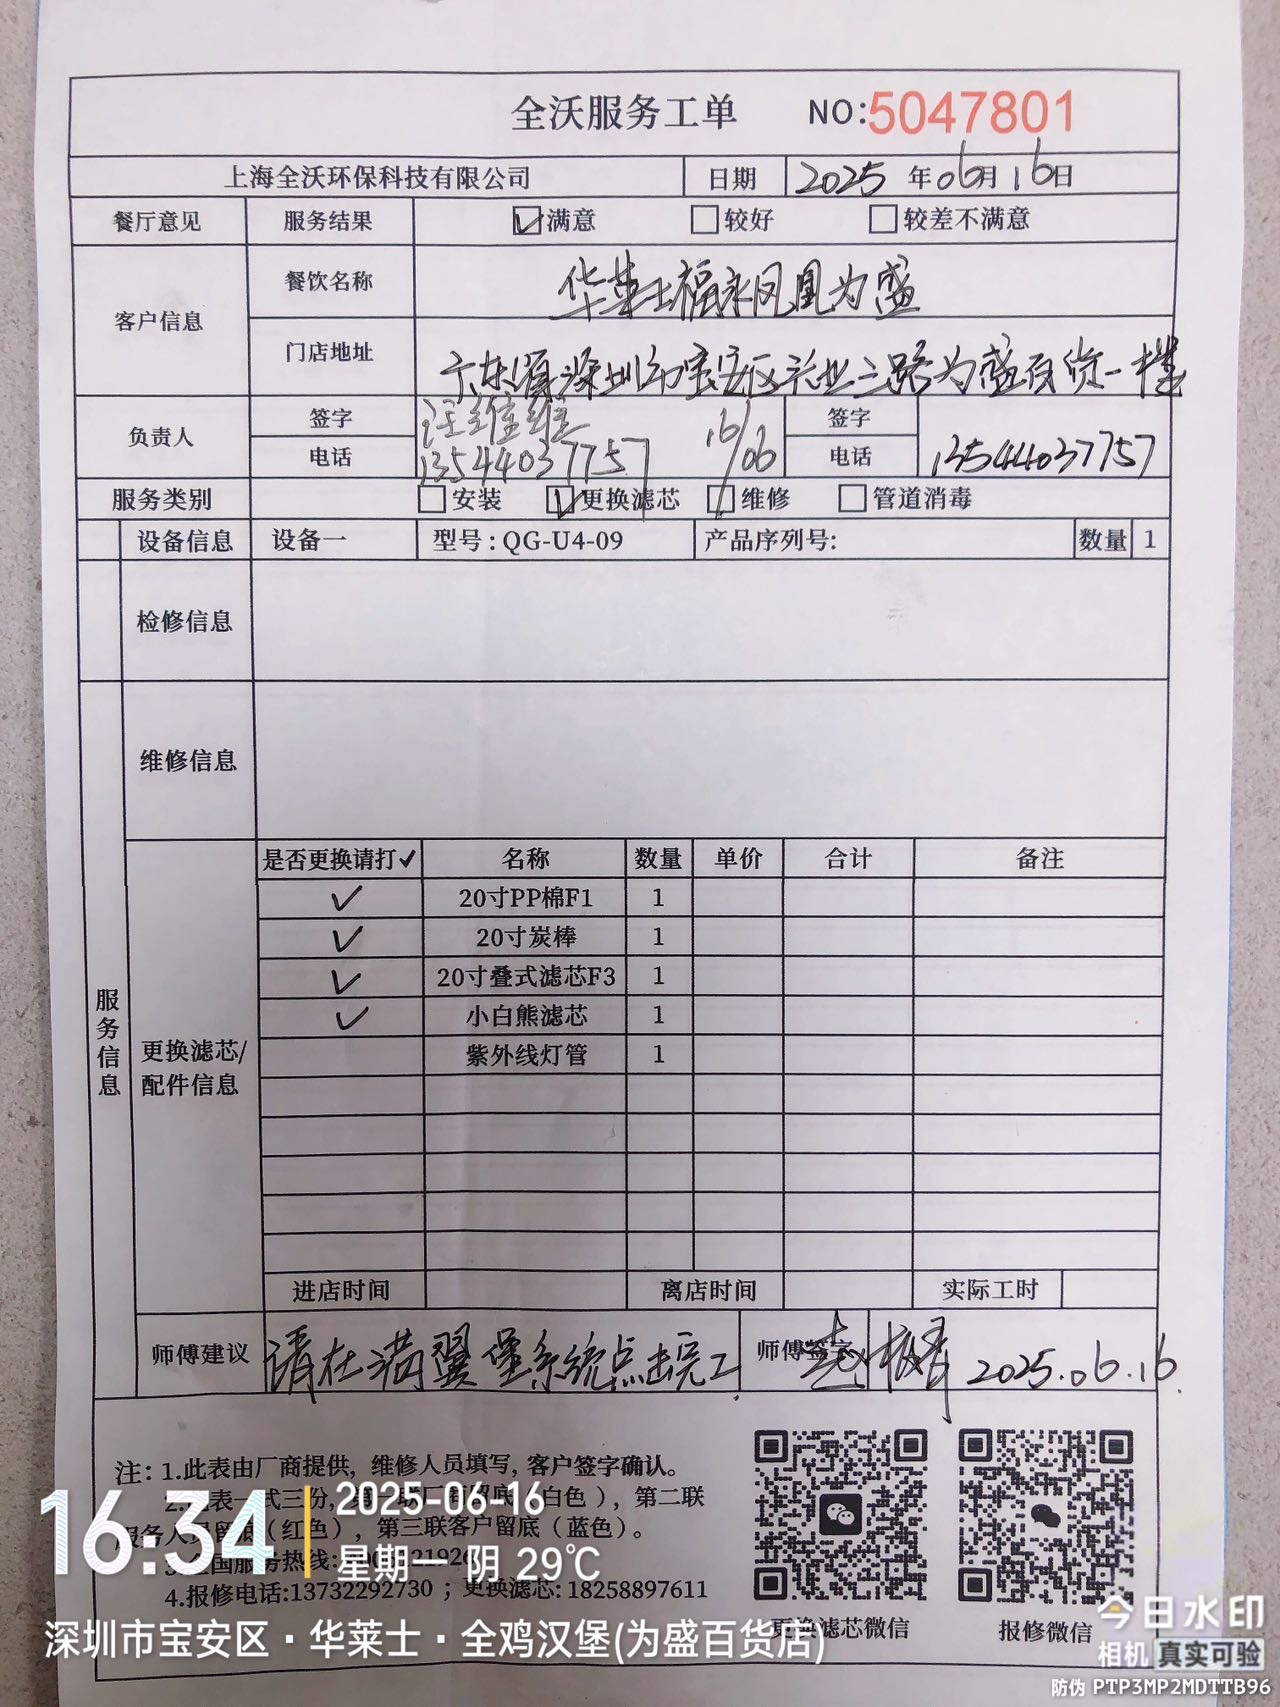 全沃服务工单 NO:5047801
上海全沃环保科技有限公司 日期 2025 年 06月 16日
餐厅意见 服务结果 满意 较好 较差不满意
客户信息 餐饮名称 华莱士福永凤凰为盛
门店地址 广东省深圳市宝安区兴业二路为盛百货一楼
负责人 签字 汪维维 16/06 签字
电话 13544037757 电话 13544037757
服务类别 安装 更换滤芯 维修 管道消毒
设备信息 设备一 型号:QG-U4-09 产品序列号: 数量 1
检修信息
维修信息
服务信息
更换滤芯/
配件信息
是否更换请打✓ 名称 数量 单价 合计 备注
✓ 20寸PP棉F1 1
✓ 20寸炭棒 1
✓ 20寸叠式滤芯F3 1
✓ 小白熊滤芯 1
紫外线灯管 1
进店时间 离店时间 实际工时
师傅建议 请在满翼堡系统点击完工 师傅签字 2025.06.16.
注:1.此表由厂商提供,维修人员填写,客户签字确认。
表一式三份, 白色),第二联
服务人员留底(红色),第三联客户留底(蓝色)。
全国服务热线:
4.报修电话:13732292730 ; 更换滤芯:18258897611
更换滤芯微信 报修微信
16:34
2025-06-16
星期一 阴 29℃
深圳市宝安区·华莱士·全鸡汉堡(为盛百货店)
今日水印
相机 真实可验
防伪 PTP3MP2MDTTB96